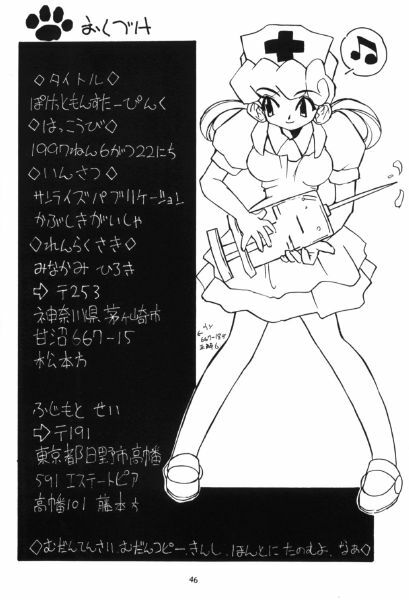 おくづけ
◇タイトル◇
ぽけっともんすたーぴんく
◇はっこうび◇
1997ねん6がつ22にち
◇いんさつ◇
サンライズパブリケーション
かぶしきがいしゃ
◇れんらくさき◇
みなかみ ひろき
⇨〒253
神奈川県茅ヶ崎市
甘沼667-15
松本方
ふじもと せい
⇨〒191
東京都日野市高幡
591 エステートピア
高幡101 藤本方
◇むだんてんさい、むだんコピー、きんし、ほんとに たのむよ、なあ◇
46